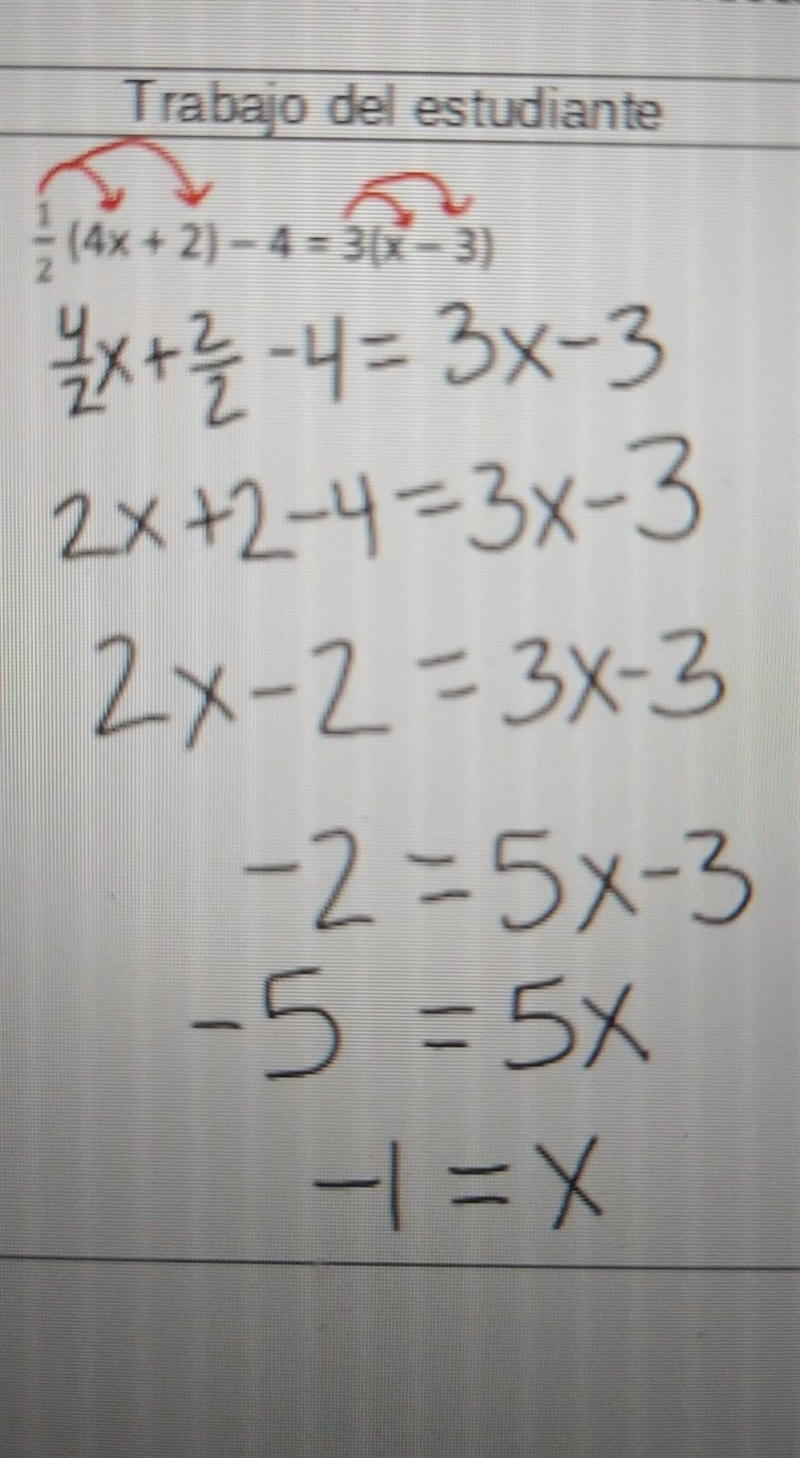 Trabajo del estudiante
1/2 (4x + 2) – 4 = 3(x – 3)
4/2 x + 2/2 - 4 = 3x - 3
2x + 2 - 4 = 3x - 3
2x - 2 = 3x - 3
-2 = 5x - 3
-5 = 5x
-1 = x